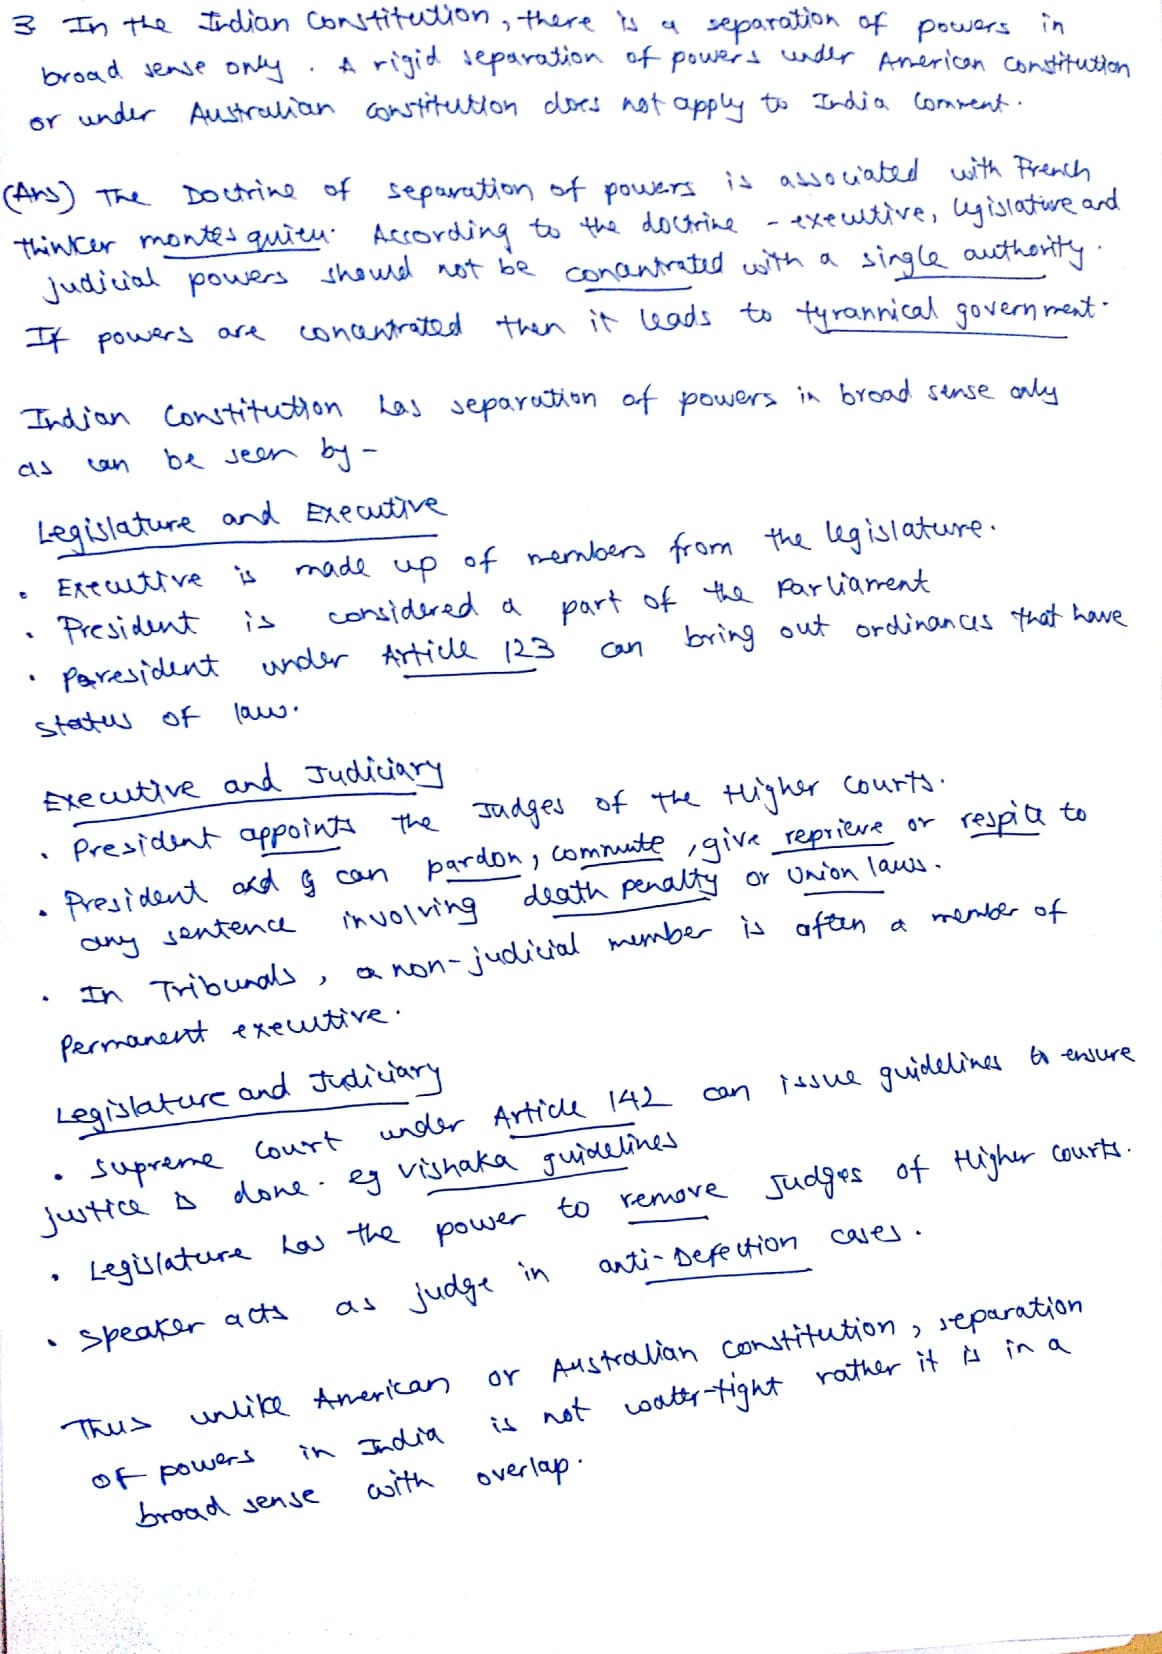 3 In the Indian Constitution, there is a separation of powers in
broad sense only. A rigid separation of powers under American Constitution
or under Australian constitution does not apply to India Comment.
(Ans) The Doctrine of separation of powers is associated with French
thinker montesquieu. According to the doctrine - executive, legislature and
judicial powers should not be concentrated with a single authority.
If powers are concentrated then it leads to tyrannical government.
Indian Constitution has separation of powers in broad sense only
as can be seen by -
Legislature and Executive
• Executive is made up of members from the legislature.
• President is considered a part of the Parliament
• Paresident under Article 123 can bring out ordinances that have
status of law.
Executive and Judiciary
• President appoints the Judges of the Higher Courts.
• President can pardon, commute, give reprieve or respite to
any sentence involving death penalty or Union laws.
• In Tribunals, a non-judicial member is often a member of
Permanent executive.
Legislature and Judiciary
• Supreme Court under Article 142 can issue guidelines to ensure
justice is done. eg Vishaka guidelines
• Legislature has the power to remove Judges of Higher Courts.
• Speaker acts as judge in anti-Defection cases.
Thus unlike American or Australian Constitution, separation
of powers in India is not water-tight rather it is in a
broad sense with overlap.